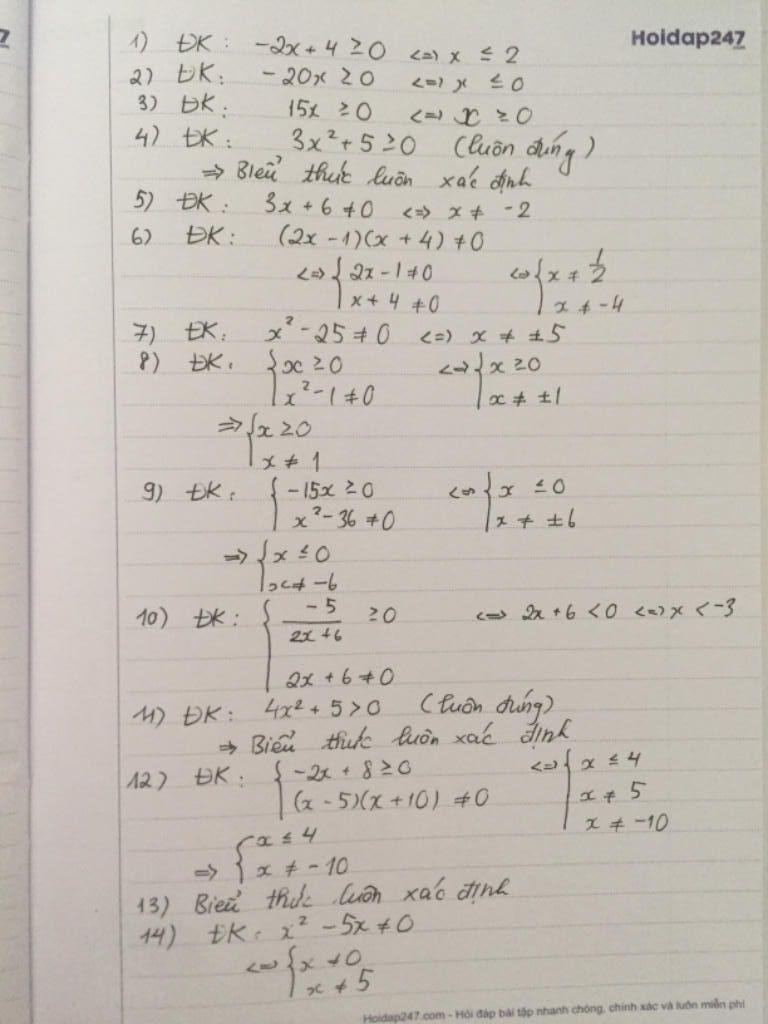 7
Hoidap247
1) ĐK: -2x + 4 ≥ 0 <=> x ≤ 2
2) ĐK: -20x ≥ 0 <=> x ≤ 0
3) ĐK: 15x ≥ 0 <=> x ≥ 0
4) ĐK: 3x² + 5 ≥ 0 (luôn đúng)
=> Biểu thức luôn xác định
5) ĐK: 3x + 6 ≠ 0 <=> x ≠ -2
6) ĐK: (2x - 1)(x + 4) ≠ 0
<=> { 2x - 1 ≠ 0 <=> { x ≠ 1/2
x + 4 ≠ 0 x ≠ -4
7) ĐK: x² - 25 ≠ 0 <=> x ≠ ±5
8) ĐK: { x ≥ 0 <=> { x ≥ 0
x² - 1 ≠ 0 x ≠ ±1
=> { x ≥ 0
x ≠ 1
9) ĐK: { -15x ≥ 0 <=> { x ≤ 0
x² - 36 ≠ 0 x ≠ ±6
=> { x ≤ 0
x ≠ -6
10) ĐK: { -5/(2x + 6) ≥ 0 <=> 2x + 6 < 0 <=> x < -3
2x + 6 ≠ 0
11) ĐK: 4x² + 5 > 0 (luôn đúng)
=> Biểu thức luôn xác định
12) ĐK: { -2x + 8 ≥ 0 <=> { x ≤ 4
(x - 5)(x + 10) ≠ 0 x ≠ 5
x ≠ -10
=> { x ≤ 4
x ≠ -10
13) Biểu thức luôn xác định
14) ĐK: x² - 5x ≠ 0
<=> { x ≠ 0
x ≠ 5
Hoidap247.com - Hỏi đáp bài tập nhanh chóng, chính xác và luôn miễn phí